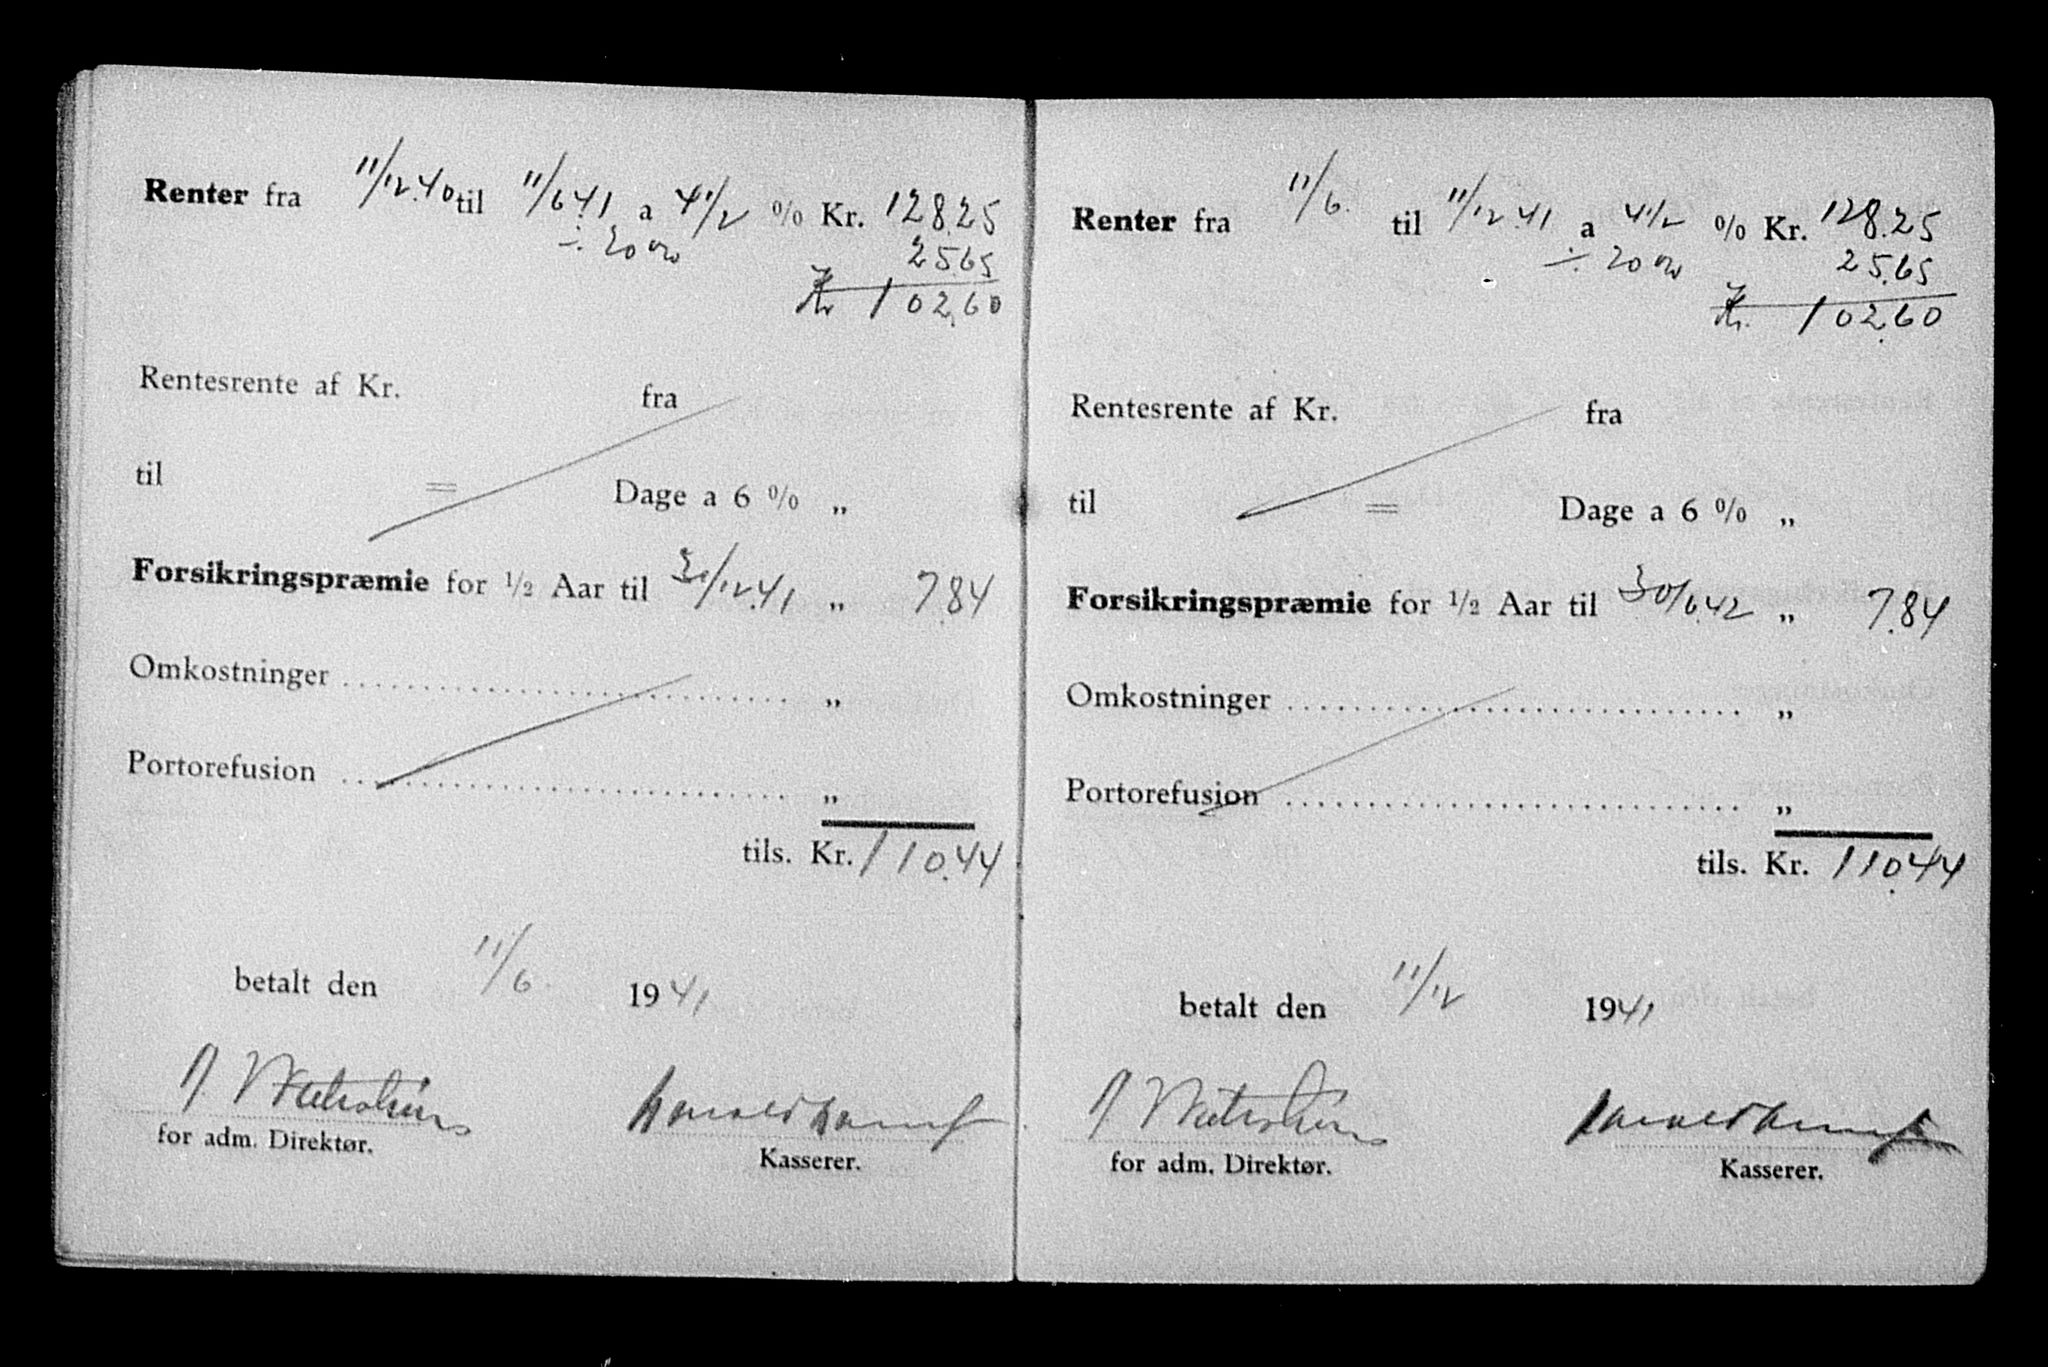 Renter fra 11/12.40 til 11/6 41 a 4 1/2 % Kr. 128.25
÷ 20 % 25 65
Kr 102.60
Rentesrente af Kr. fra
til = Dage a 6 % „
Forsikringspræmie for 1/2 Aar til 31/12.41 „ 7.84
Omkostninger „
Portorefusion „
tils. Kr. 110.44
betalt den 11/6. 1941
for adm. Direktør. Kasserer.
Renter fra 11/6. til 11/12.41 a 4 1/2 % Kr. 128.25
÷ 20 % 25.65
Kr. 102.60
Rentesrente af Kr. fra
til = Dage a 6 % „
Forsikringspræmie for 1/2 Aar til 30/6.42 „ 7.84
Omkostninger „
Portorefusion „
tils. Kr. 110.44
betalt den 11/12 1941
for adm. Direktør. Kasserer.